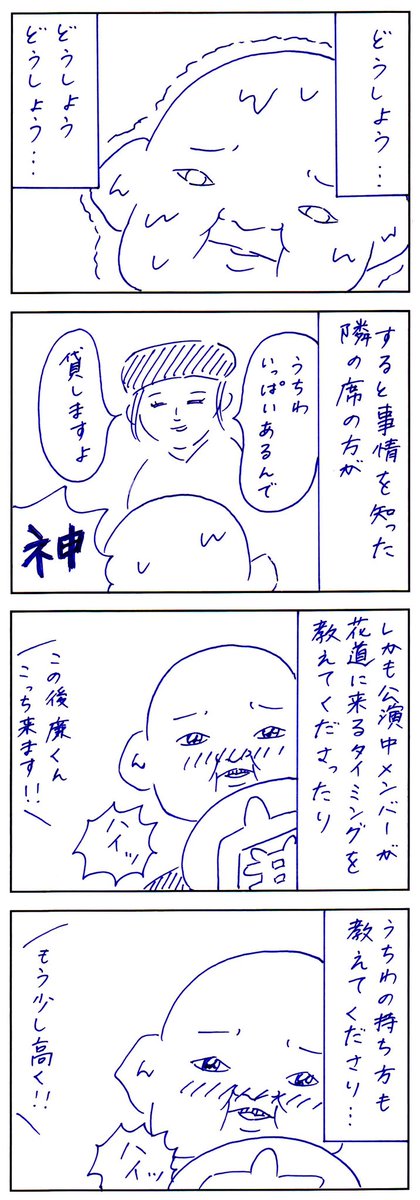 どうしよう…
どうしよう
どうしよう…
すると事情を知った
隣の席の方が
うちわ
いっぱいあるんで
貸しますよ
神
しかも公演中メンバーが
花道に来るタイミングを
教えてくださったり
この後廉くん
こっち来ます!!
ハイッ
うちわの持ち方も
教えてくださり…
もう少し高く!!
ハイッ